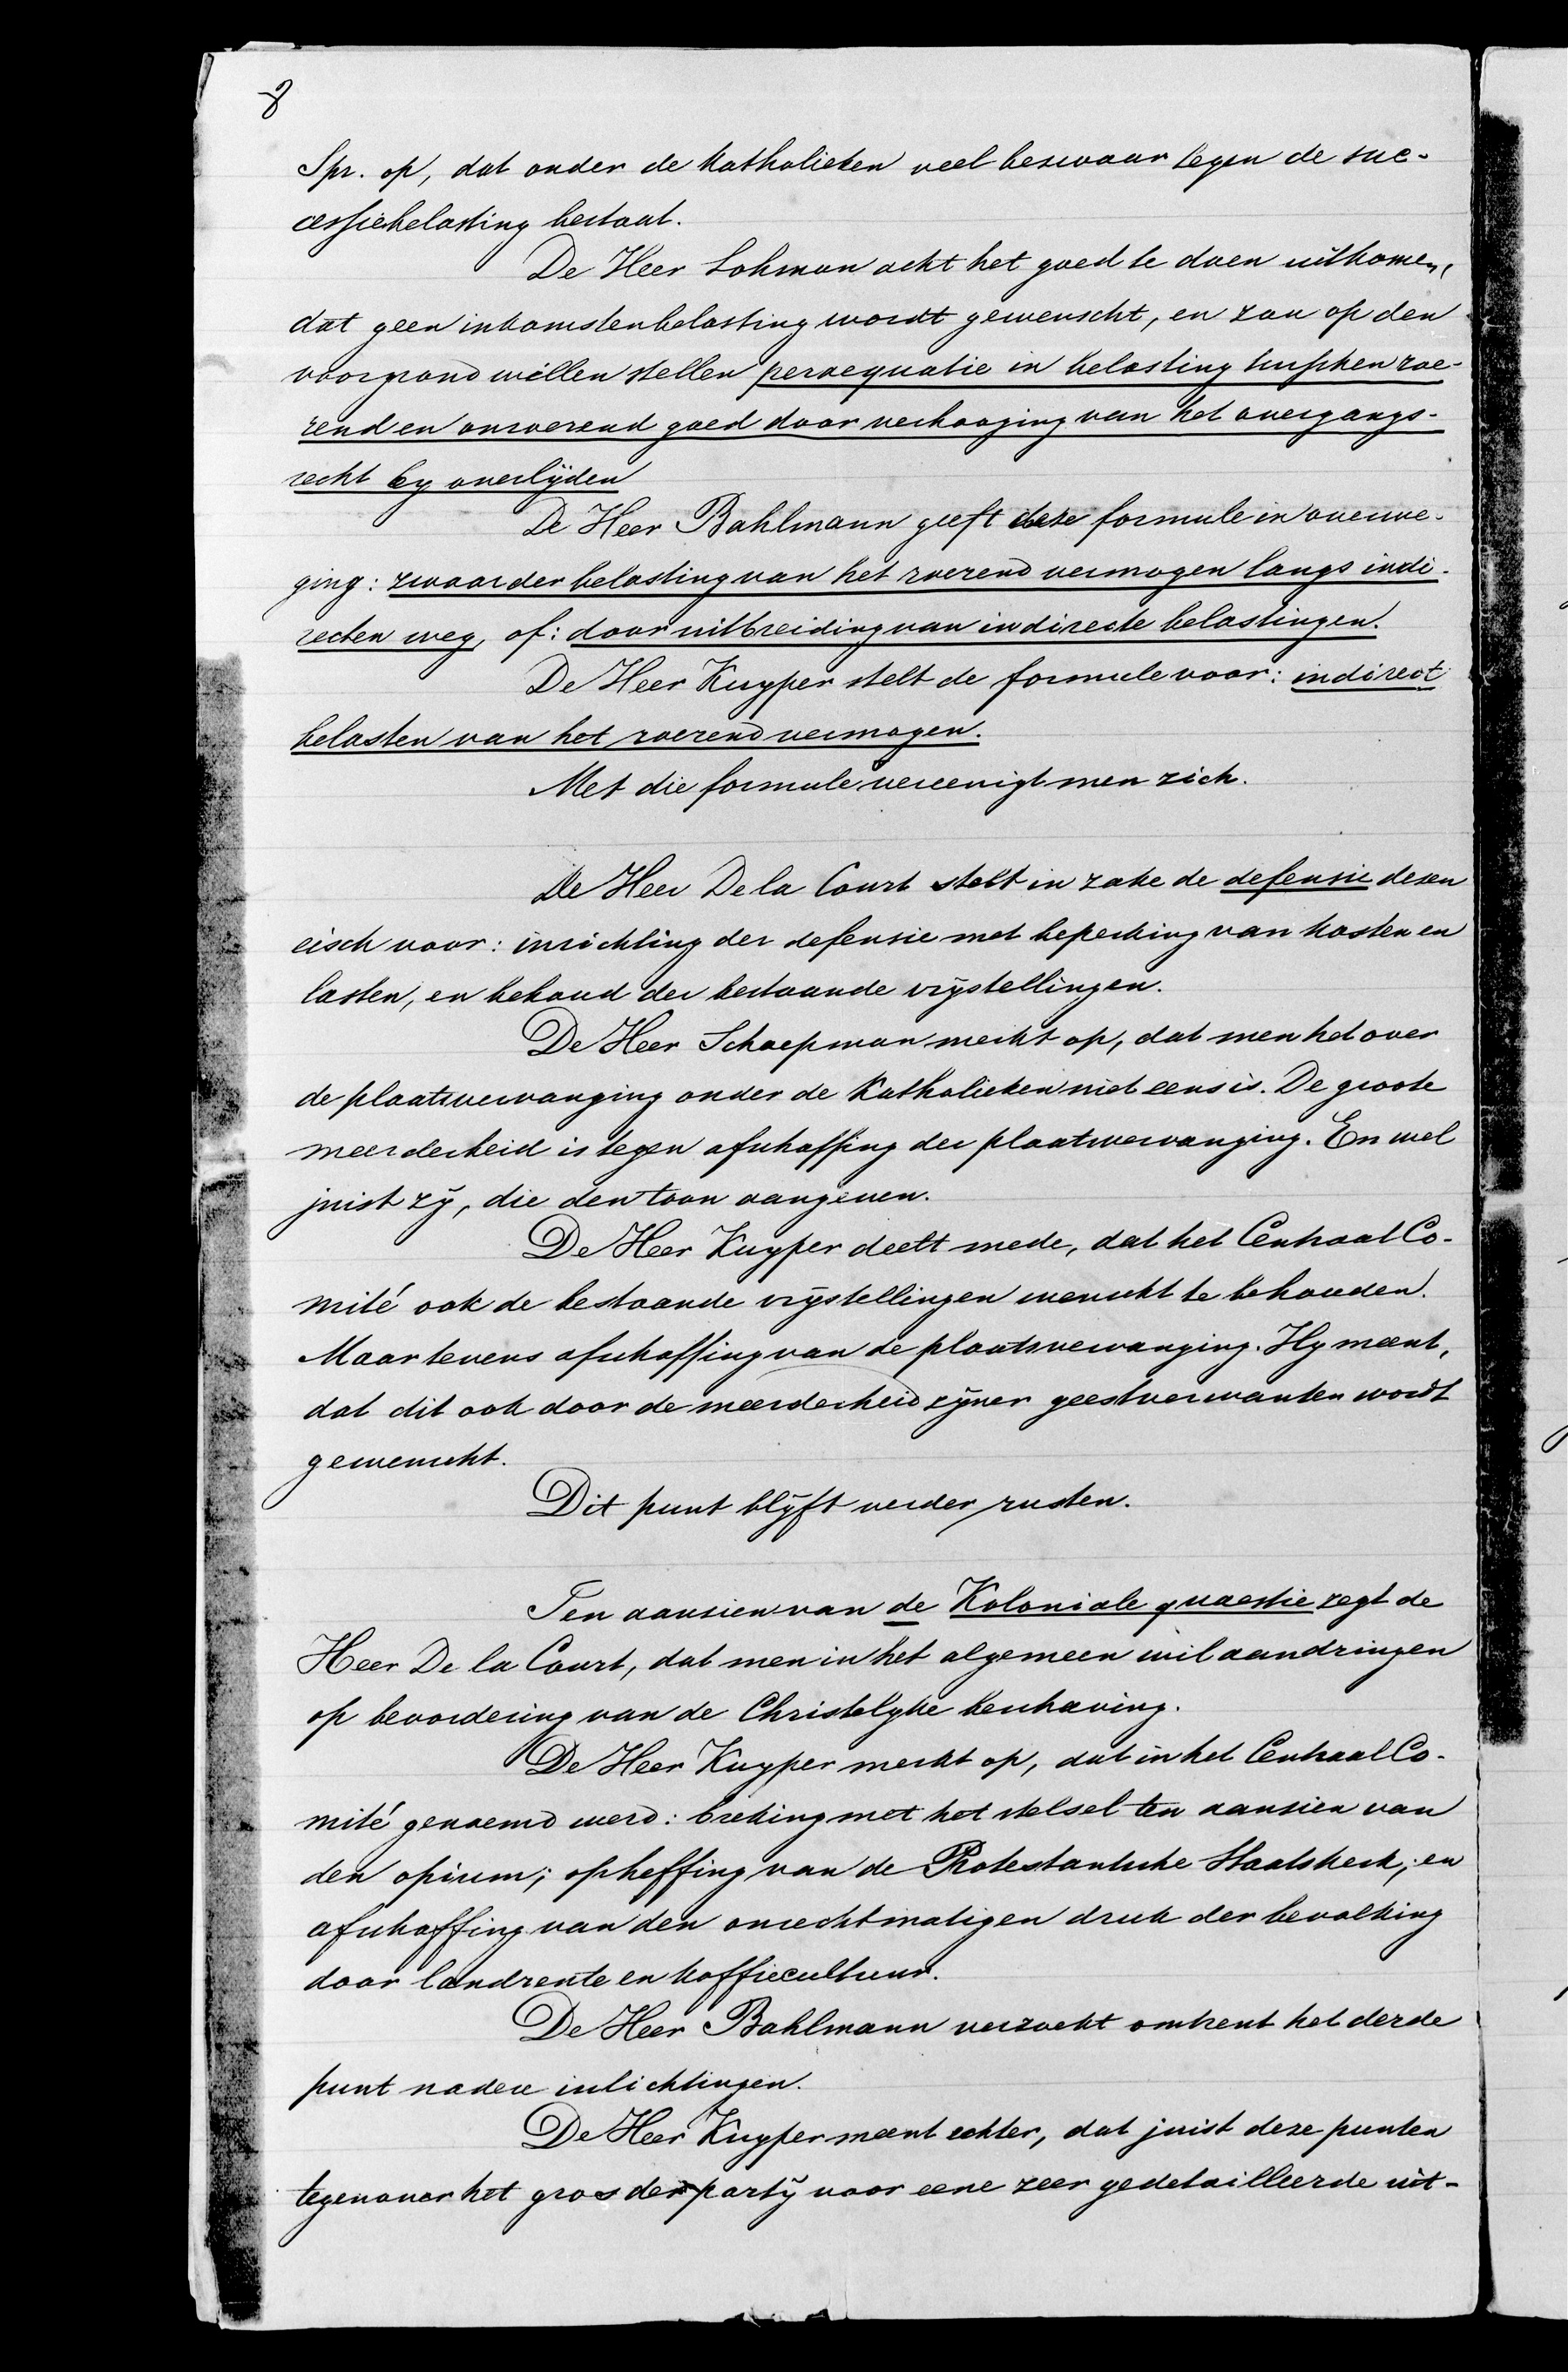 8
Spr. op, dat onder de Katholieken veel bezwaar tegen de suc-
cessiebelasting bestaat.
De Heer Lohman acht het goed te doen uitkomen,
dat geen inkomstenbelasting wordt gewenscht, en zou op den
voorgrond willen stellen peraequatie in belasting tusschen roe-
rend en onroerend goed door verhooging van het overgangs-
recht by overlijden
De Heer Bahlmann geeft deze formule in overwe-
ging: zwaarder belasting van het roerend vermogen langs indi-
recten weg, of: door uitbreiding van indirecte belastingen.
De Heer Kuyper stelt de formule voor: indirect
belasten van het roerend vermogen.
Met die formule vereenigt men zich.
De Heer De la Court stelt in zake de defensie dezen
eisch voor: inrichting der defensie met beperking van kosten en
lasten, en behoud der bestaande vrijstellingen.
De Heer Schaepman merkt op, dat men het over
de plaatsvervanging onder de Katholieken niet eens is. De groote
meerderheid is tegen afschaffing der plaatsvervanging. En wel
juist zij, die den toon aangeven.
De Heer Kuyper deelt mede, dat het Centraal Co-
mité ook de bestaande vrijstellingen wenscht te behouden.
Maar tevens afschaffing van de plaatsvervanging. Hy meent,
dat dit ook door de meerderheid zijner geestverwanten wordt
gewenscht.
Dit punt blijft verder rusten.
Ten aanzien van de Koloniale quaestie zegt de
Heer De la Court, dat men in het algemeen wil aandringen
op bevordering van de Christelyke beschaving.
De Heer Kuyper merkt op, dat in het Centraal Co-
mité genoemd werd: breking met het stelsel ten aanzien van
den opium; opheffing van de Protestantsche Staatskerk; en
afschaffing van den onrechtmatigen druk der bevolking
door landrente en koffiecultuur.
De Heer Bahlmann verzoekt omtrent het derde
punt nadere inlichtingen.
De Heer Kuyper meent echter, dat juist deze punten
tegenover het gros der partij voor eene zeer gedetailleerde uit-